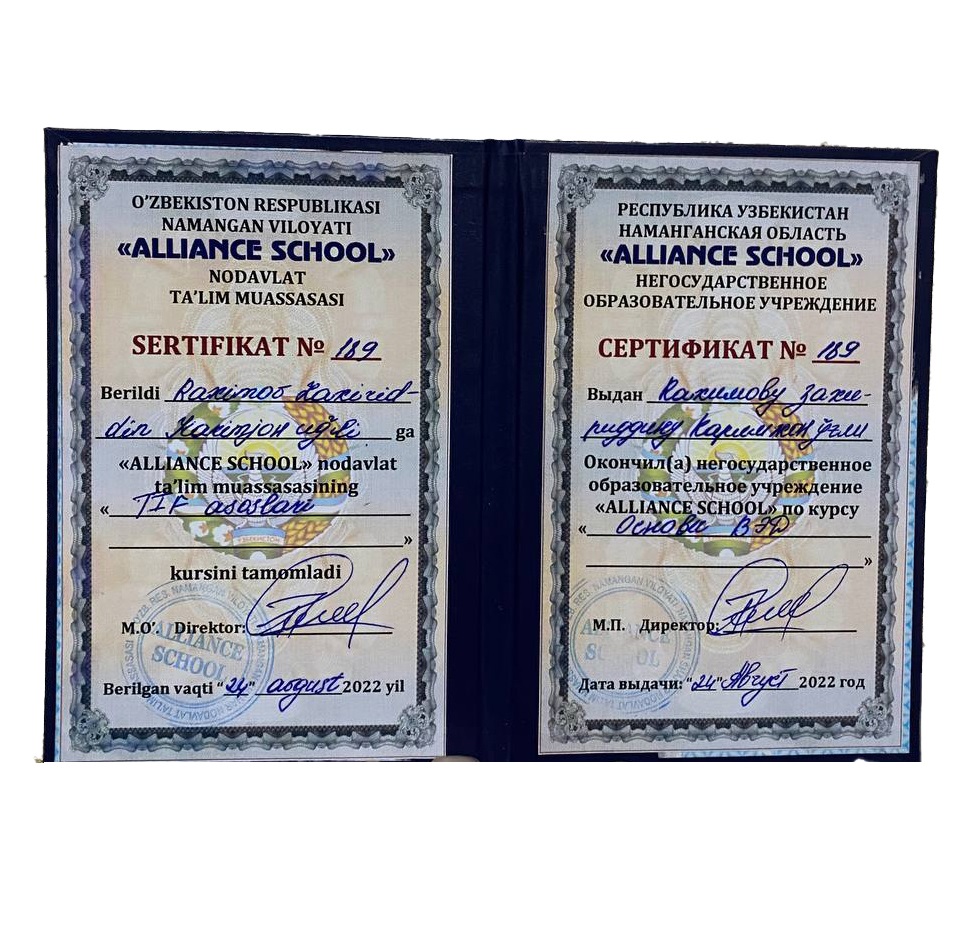 O‘ZBEKISTON RESPUBLIKASI
NAMANGAN VILOYATI
«ALLIANCE SCHOOL»
NODAVLAT
TA’LIM MUASSASASI
SERTIFIKAT № 189
Berildi Raximov Zaxirid-
din Karimjon ug‘li ga
«ALLIANCE SCHOOL» nodavlat
ta’lim muassasasining
« TIF asoslari
»
kursini tamomladi
M.O‘. Direktor:
ALLIANCE
SCHOOL
Berilgan vaqti “24” avgust 2022 yil
РЕСПУБЛИКА УЗБЕКИСТАН
НАМАНГАНСКАЯ ОБЛАСТЬ
«ALLIANCE SCHOOL»
НЕГОСУДАРСТВЕННОЕ
ОБРАЗОВАТЕЛЬНОЕ УЧРЕЖДЕНИЕ
СЕРТИФИКАТ № 189
Выдан Рахимову Захи-
риддину Каримжон ўғли
Окончил(а) негосударственное
образовательное учреждение
«ALLIANCE SCHOOL» по курсу
« Основы ВЭД
»
М.П. Директор:
Дата выдачи: “24” Август 2022 год